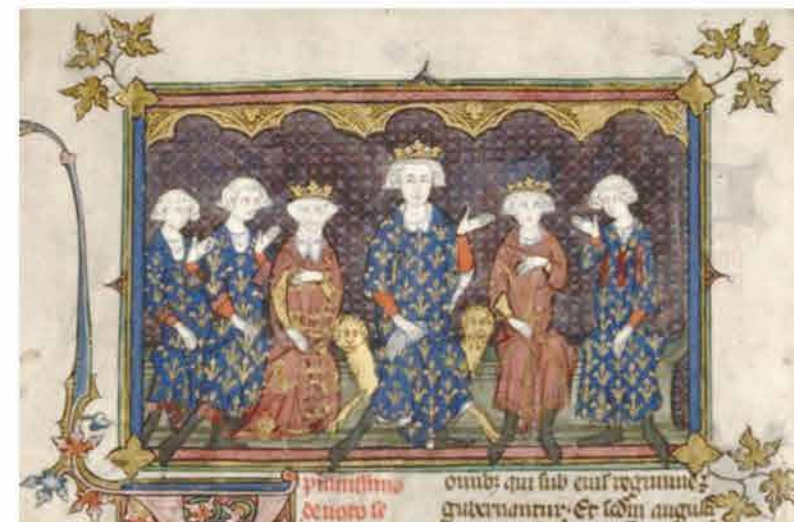 deuoto se
omnibꝫ qui sub eius regimine
gubernantur. Et scd̃m augusti